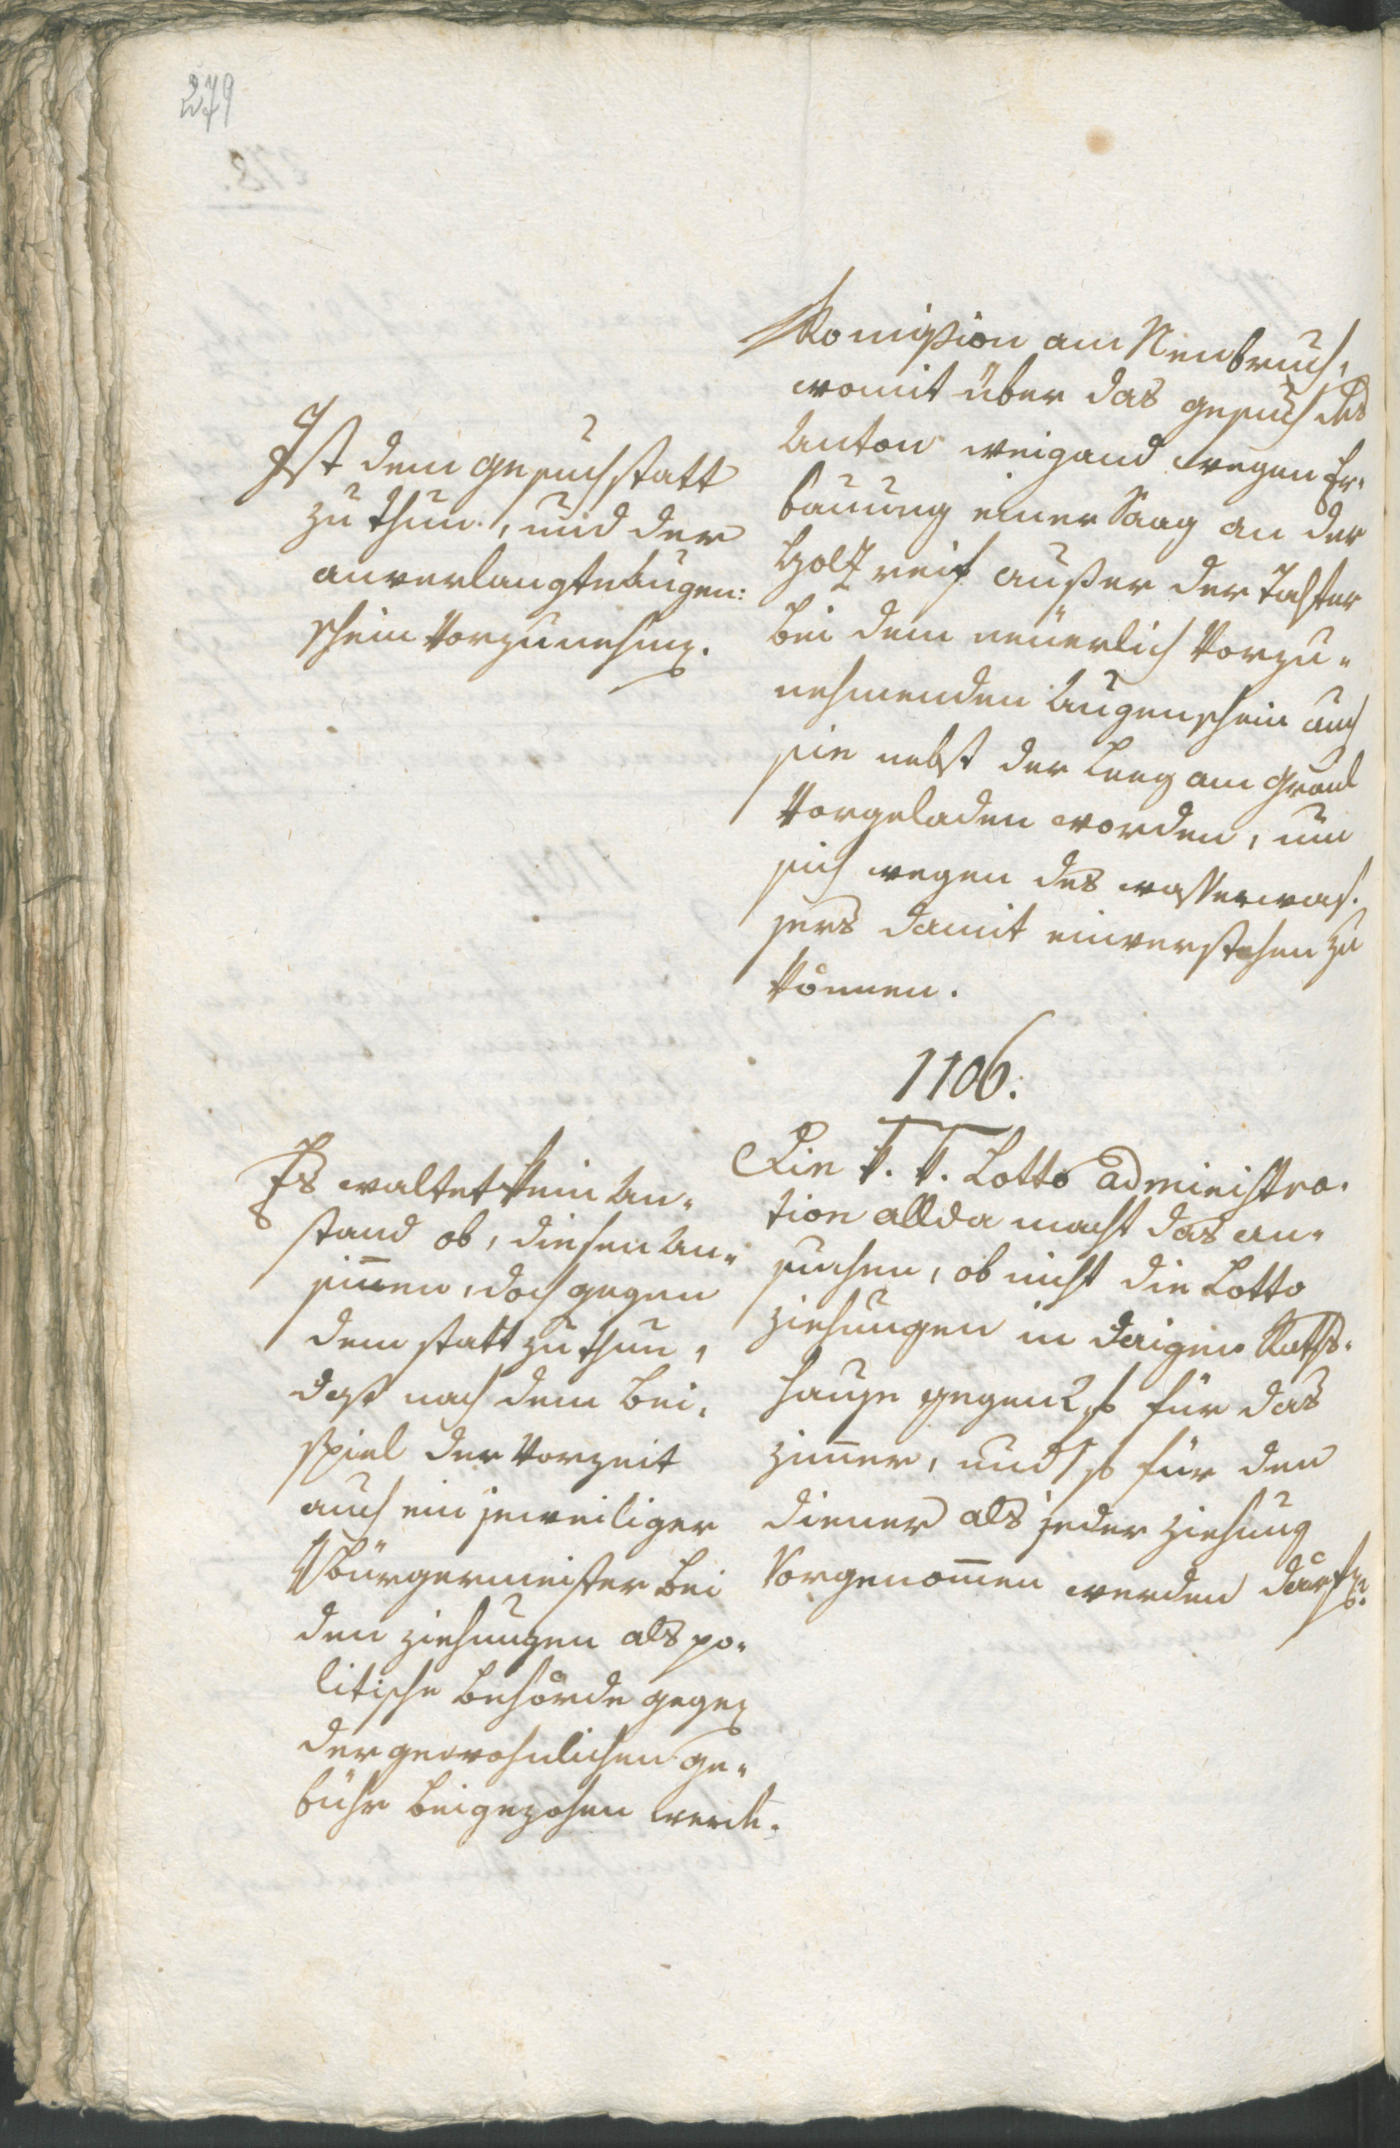 279
Komißion am Neubruch,
womit über das gesuch des
Anton Weigand wegen Er-
bauung einer Saag an der
Holzreif außer der Talfer
bei dem neuerlich Vorzu-
nehmenden Augenschein auch
sie nebst der Leeg am Grand
Vorgeladen worden, um
sich wegen des wasserwas-
sers damit einverstehen zu
können.
Ist dem gesuch statt
zu thun, und der
anverlangte Augen:
schein Vorzunehmen.
1106.
Die k. k. Lotto administra-
tion allda macht das an-
suchen, ob nicht die Lotto
ziehungen in daigen Raths-
hause gegen 2 f für das
zimmer, und 1 f für den
diener als jeder ziehung
Vorgenommen werden därfen?
Es waltet kein An-
stand ob, diesen An-
sinnen, doch gegen
dem statt zu thun,
daß nach dem bei-
spiel der Vorzeit
auch ein jeweiliger
Bürgermeister bei
den ziehungen als po-
litische behörde gegen
der gewohnlichen ge-
bühr beigezohen werde.